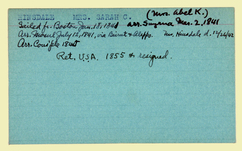 HINSDALE MRS. SARAH C. (Mrs. Abel K.)
Sailed fr. Boston Jan. 18, 1841 arr. Smyrna Mar. 2, 1841
Arr. Mosul July 12, 1841, via Beirut & Aleppo. Mr. Hinsdale d. 12/26/42
Arr. Con'ple
Ret. U.S.A. 1855 & resigned.